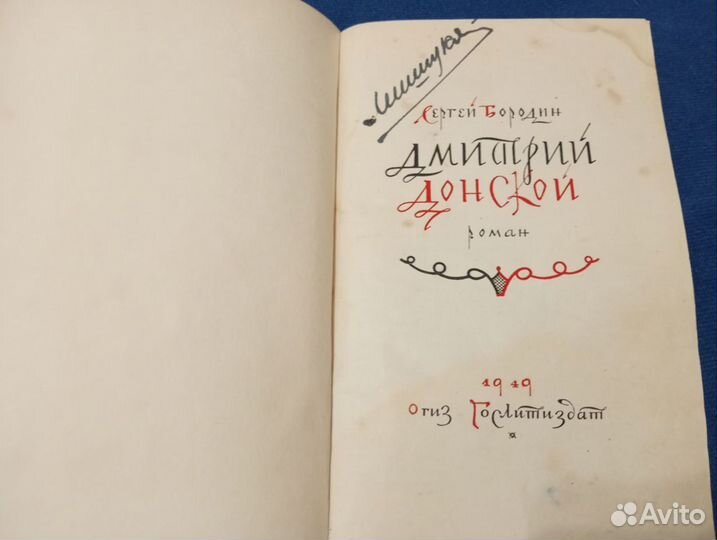 Сергей Бородин
Дмитрий
Донской
роман
1949
Огиз Гослитиздат
Avito